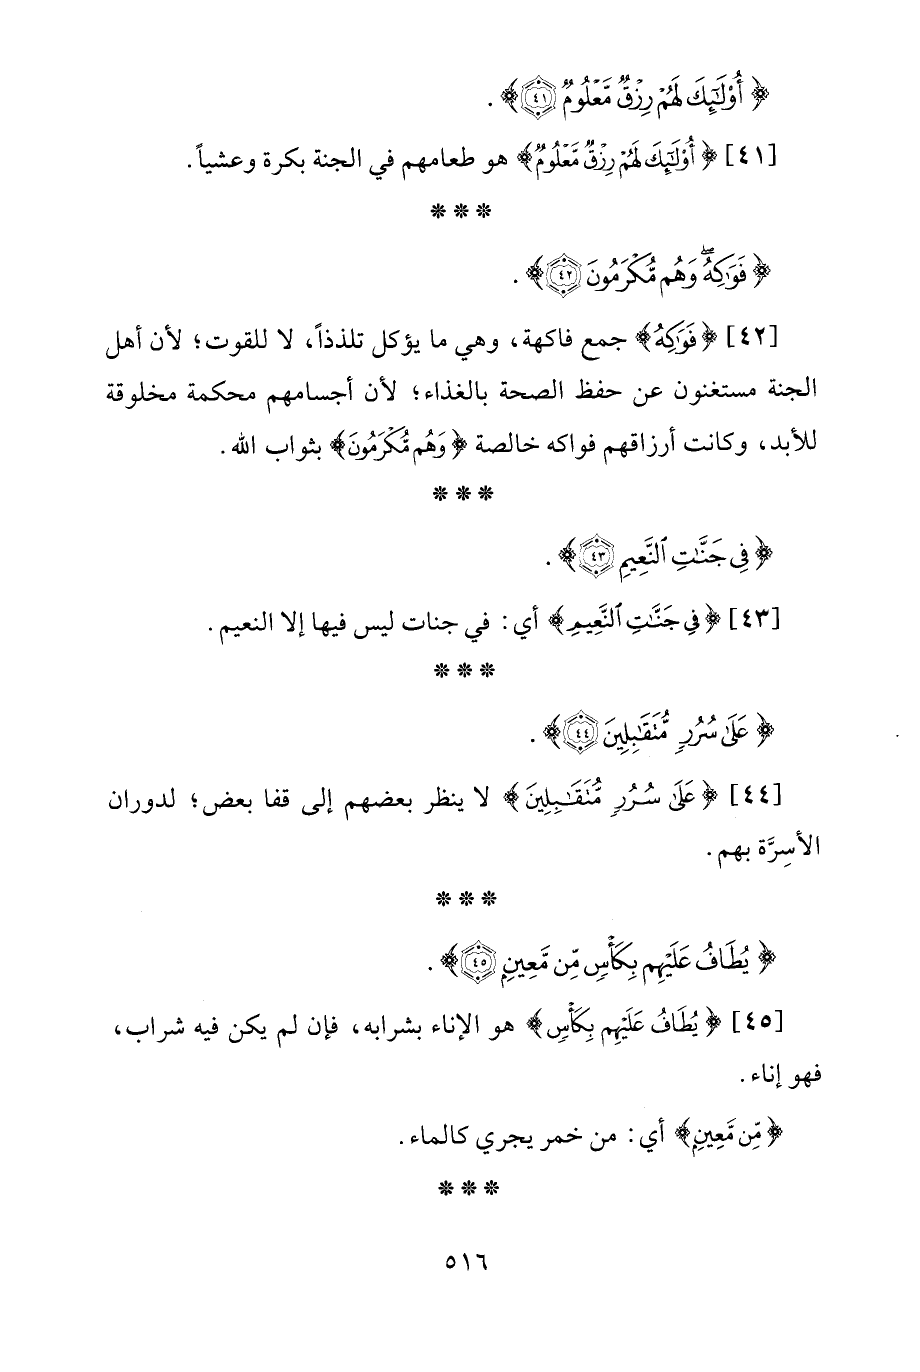 ﴿أُوْلَٰٓئِكَ لَهُمْ رِزْقٌ مَّعْلُومٌ ٤١﴾ .
[٤١] ﴿أُوْلَٰٓئِكَ لَهُمْ رِزْقٌ مَّعْلُومٌ﴾ هو طعامهم في الجنة بكرة وعشياً.
* * *
﴿فَوَٰكِهُ ۖ وَهُم مُّكْرَمُونَ ٤٢﴾ .
[٤٢] ﴿فَوَٰكِهُ﴾ جمع فاكهة، وهي ما يؤكل تلذذاً، لا للقوت؛ لأن أهل
الجنة مستغنون عن حفظ الصحة بالغذاء؛ لأن أجسامهم محكمة مخلوقة
للأبد، وكانت أرزاقهم فواكه خالصة ﴿وَهُم مُّكْرَمُونَ﴾ بثواب الله.
* * *
﴿فِي جَنَّٰتِ ٱلنَّعِيمِ ٤٣﴾ .
[٤٣] ﴿فِي جَنَّٰتِ ٱلنَّعِيمِ﴾ أي: في جنات ليس فيها إلا النعيم.
* * *
﴿عَلَىٰ سُرُرٍ مُّتَقَٰبِلِينَ ٤٤﴾ .
[٤٤] ﴿عَلَىٰ سُرُرٍ مُّتَقَٰبِلِينَ﴾ لا ينظر بعضهم إلى قفا بعض؛ لدوران
الأسِرَّة بهم.
* * *
﴿يُطَافُ عَلَيْهِم بِكَأْسٍ مِّن مَّعِينٍ ٤٥﴾ .
[٤٥] ﴿يُطَافُ عَلَيْهِم بِكَأْسٍ﴾ هو الإناء بشرابه، فإن لم يكن فيه شراب،
فهو إناء.
﴿مِّن مَّعِينٍ﴾ أي: من خمر يجري كالماء.
* * *
٥١٦